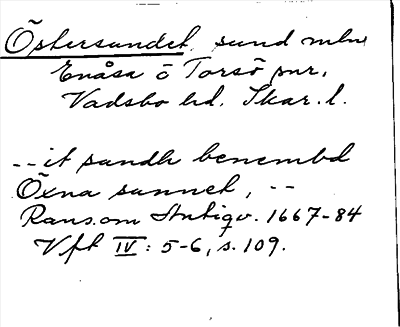 Östersundet, sund mln
Enåsa o Torsö snr,
Vadsbo hd. Skar. l.
-- it sundh benembd
Öxna sunnet, --
Rans.om Antiqv. 1667-84
Vft IV: 5-6, s. 109.